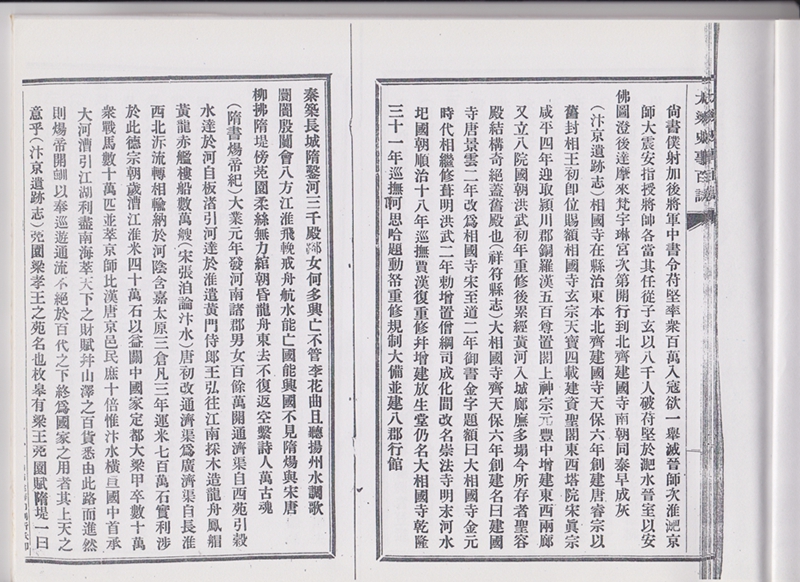 尙書僕射加後將軍中書令苻堅率衆百萬入寇欲一舉滅晉師次淮淝京
師大震安指授將帥各當其任從子玄以八千人破苻堅於淝水晉室以安
佛圖澄後達摩來梵宇琳宮次第開行到北齊建國寺南朝同泰早成灰
(汴京遺跡志)相國寺在縣治東本北齊建國寺天保六年創建唐睿宗以
舊封相王初卽位賜額相國寺玄宗天寶四載建資聖閣東西塔院宋眞宗
咸平四年迎取潁川郡銅羅漢五百尊置閣上神宗元豐中增建東西兩廊
又立八院國朝洪武初年重修後累經黃河入城廊廡多塌今所存者聖容
殿結構奇絕蓋舊殿也(祥符縣志)大相國寺齊天保六年創建名曰建國
寺唐景雲二年改爲相國寺宋至道二年御書金字題額曰大相國寺金元
時代相繼修葺明洪武二年勅增置僧綱司成化間改名崇法寺明末河水
圮國朝順治十八年巡撫賈漢復重修幷增建放生堂仍名大相國寺乾隆
三十一年巡撫阿思哈題動帑重修規制大備並建八郡行館
秦築長城隋鑿河三千殿女何多興亡不管李花曲且聽揚州水調歌
闔閭殷闐會八方江淮飛輓戒舟航水能亡國能興國不見隋煬與宋唐
柳拂隋堤傍菀園柔絲無力綰朝昏龍舟東去不復返空繫詩人萬古魂
(隋書煬帝紀)大業元年發河南諸郡男女百餘萬開通濟渠自西苑引穀
水達於河自板渚引河達於淮遣黃門侍郎王弘往江南採木造龍舟鳳䑽
黃龍赤艦樓船數萬艘(宋張洎論汴水)唐初改通濟渠爲廣濟渠自長淮
西北泝流轉相輸納於河陰含嘉太原三倉凡三年運米七百萬石實利涉
於此德宗朝歲漕江淮米四十萬石以益關中國家定都大梁甲卒數十萬
衆戰馬數十萬匹並萃京師比漢唐京邑民庶十倍惟汴水橫亘國中首承
大河漕引江湖利盡南海萃天下之財賦幷山澤之百貨悉由此路而進然
則煬帝開甽以奉巡遊通流不絕於百代之下終爲國家之用者其上天之
意乎(汴京遺跡志)菀園梁孝王之苑名也枚皋有梁王菀園賦隋堤一曰